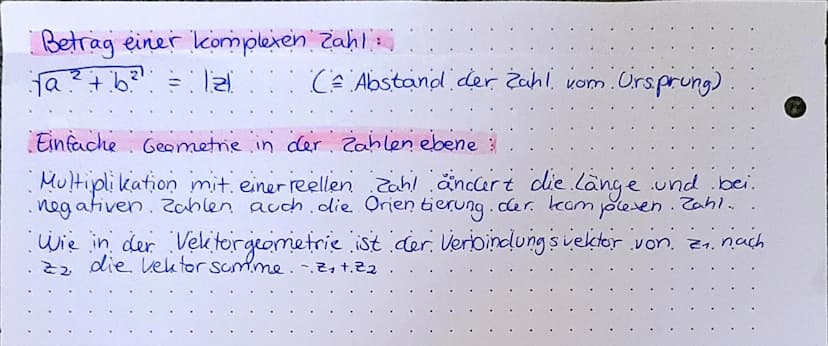 Betrag einer komplexen Zahl:
√a² + b² = |z| (≙ Abstand der Zahl vom Ursprung)
Einfache Geometrie in der Zahlenebene:
Multiplikation mit einer reellen Zahl ändert die Länge und bei
negativen Zahlen auch die Orientierung der komplexen Zahl.
Wie in der Vektorgeometrie ist der Verbindungsvektor von z₁ nach
z₂ die Vektorsumme -z₁+z₂